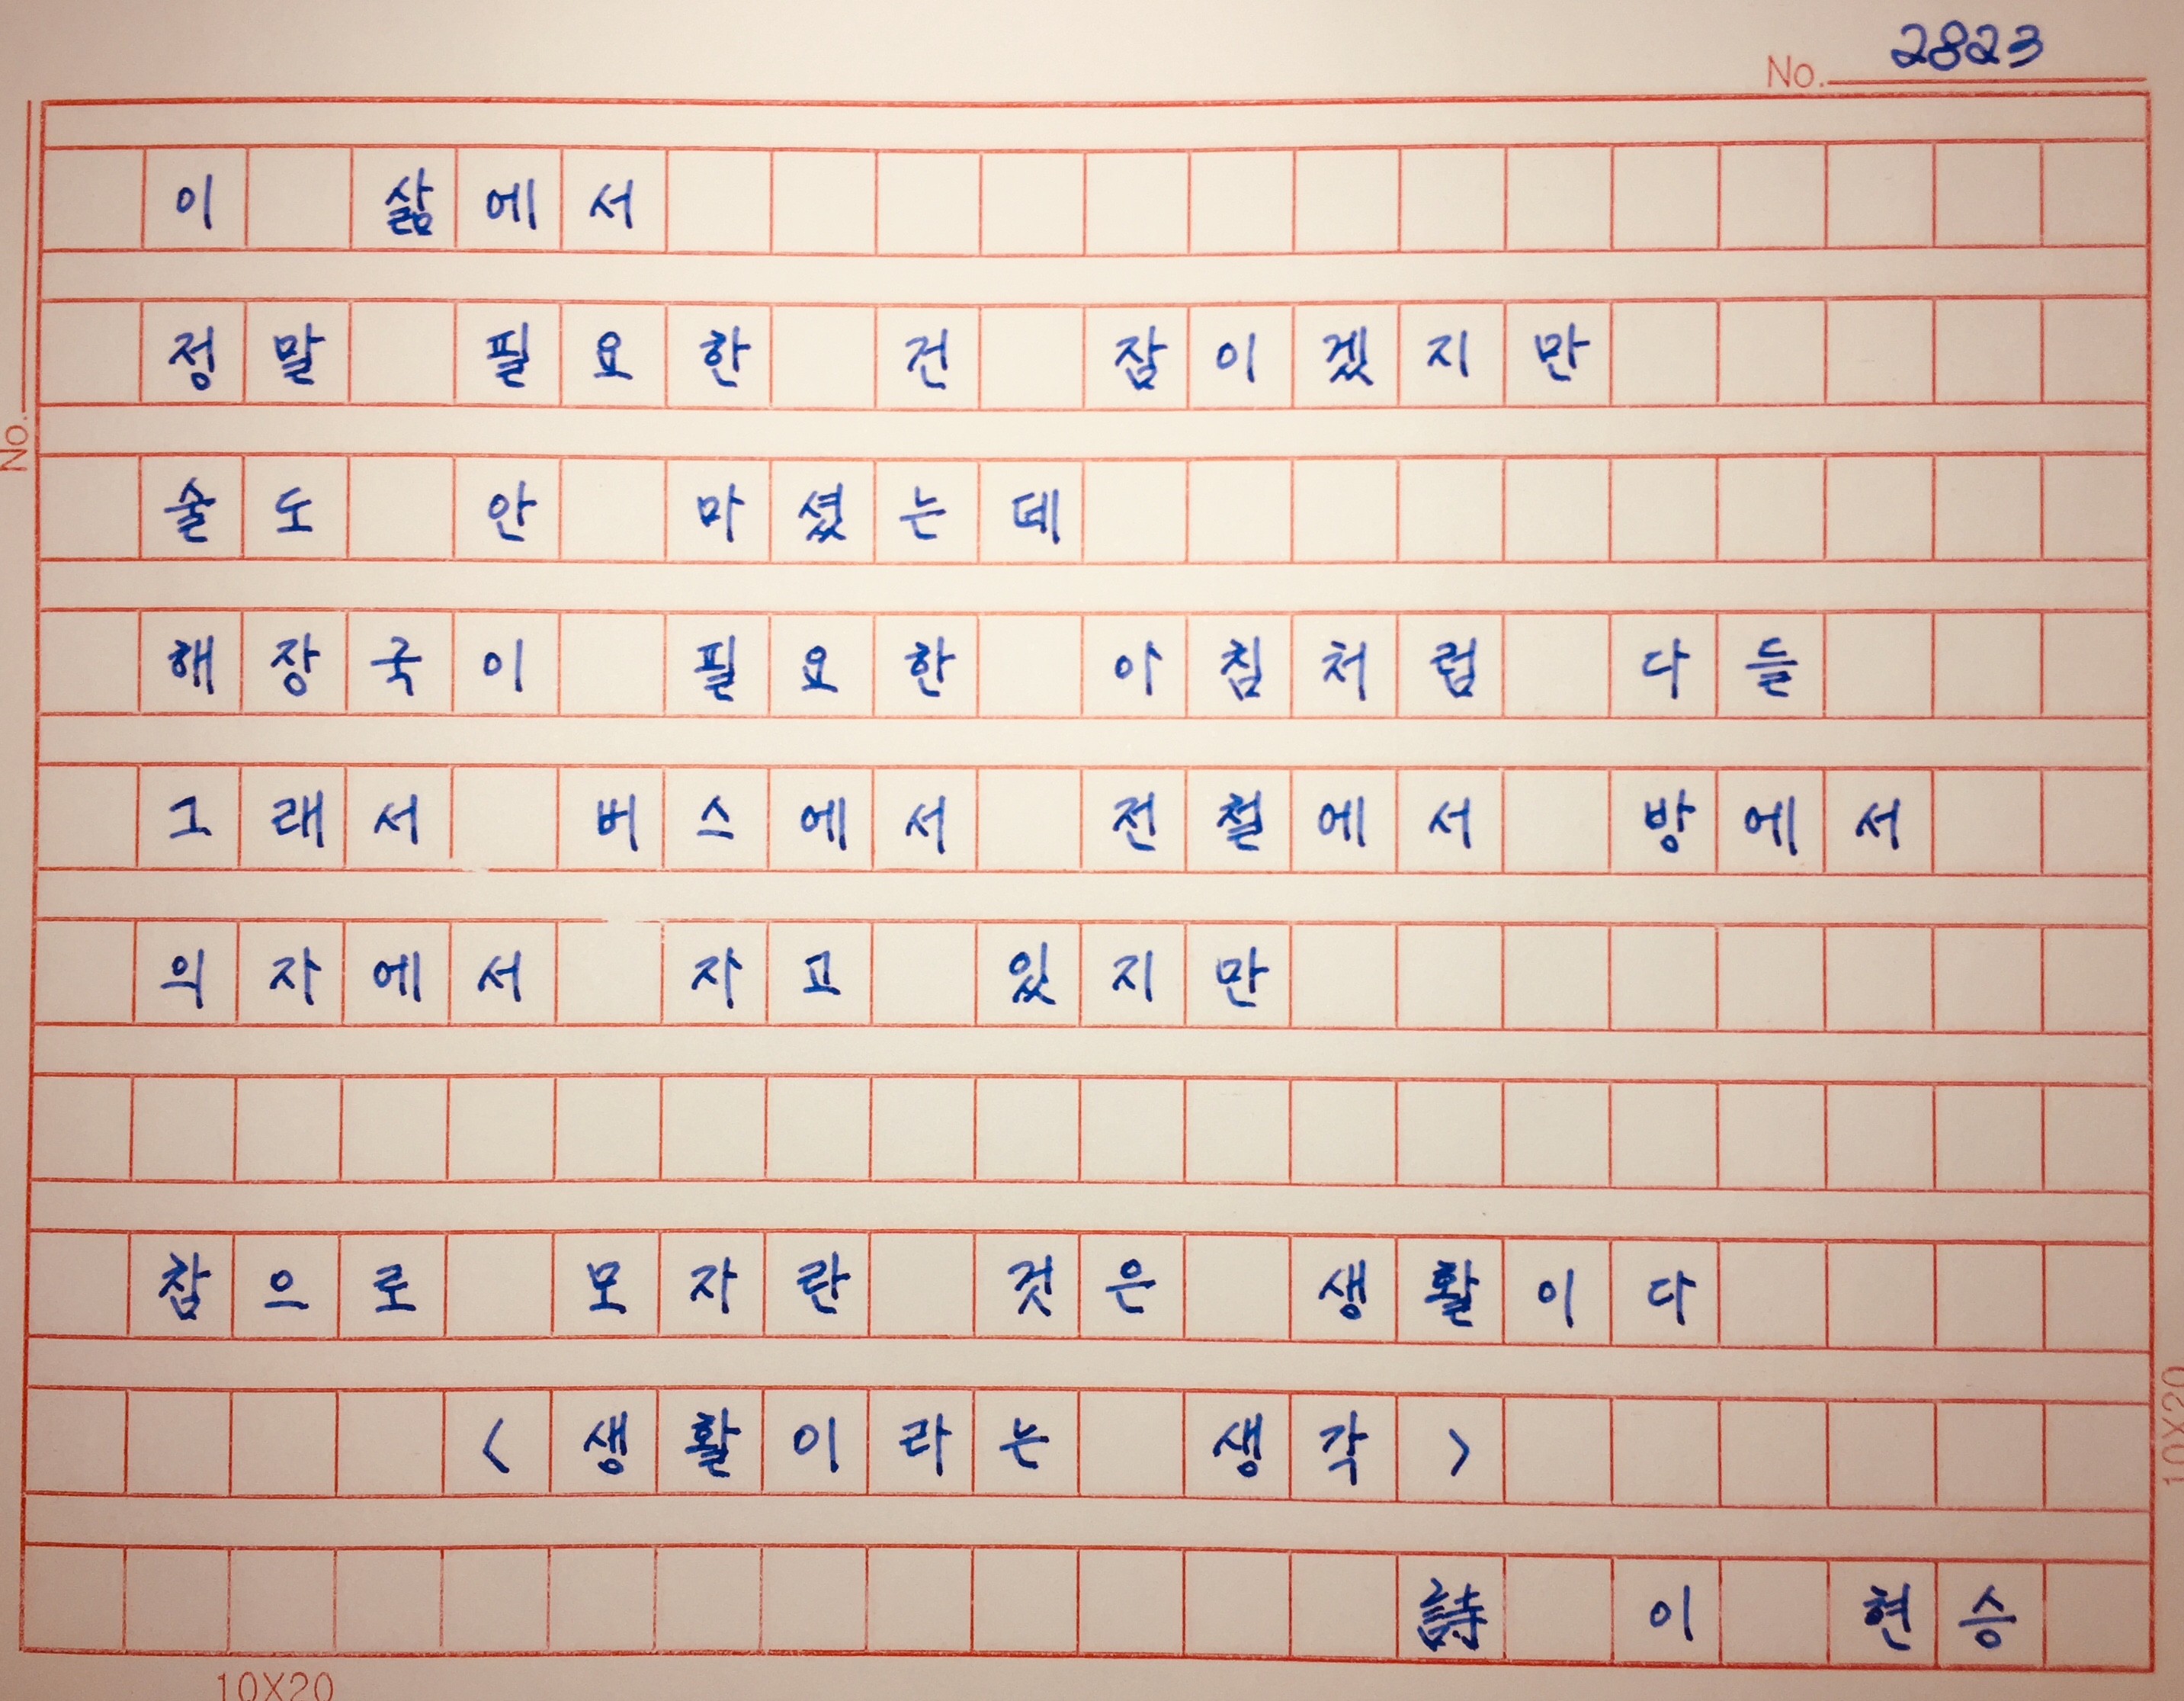 No. 2823
이 삶에서
정말 필요한 건 잠이겠지만
술도 안 마셨는데
해장국이 필요한 아침처럼 다들
그래서 버스에서 전철에서 방에서
의자에서 자고 있지만
참으로 모자란 것은 생활이다
<생활이라는 생각>
詩 이 현승
No.
10X20
10X20